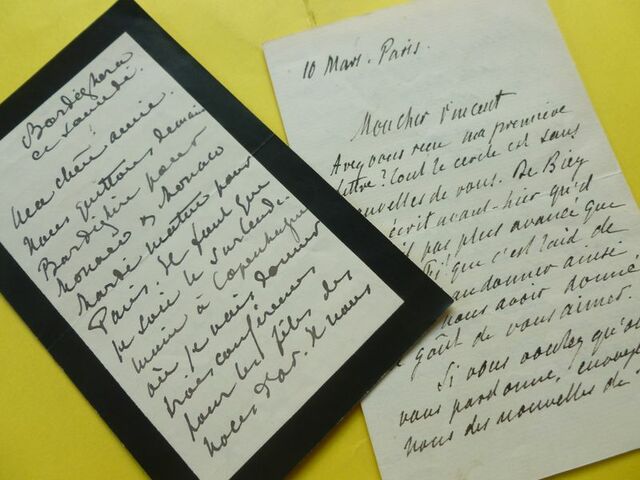 Bordighera
ce samedi.
Ma chère amie.
Nous quittons demain
Bordighera pour
Monaco & Monaco
mardi matin pour
Paris. Il faut que
je sois le surlende-
main à Copenhague
où je vais donner
trois conférences
pour les fêtes des
noces d'or. Je vous
10 Mars. Paris.
Mon cher Vincent
Avez vous reçu ma première
lettre? Tout le cercle est sans
nouvelles de vous. De Biey
écrit avant-hier qu'il
pas plus avancé que
que c'est laid de
andonner ainsi
nous avoir donné
goût de vous aimer.
Si vous voulez qu'on
vous pardonne, envoyez
nous des nouvelles de